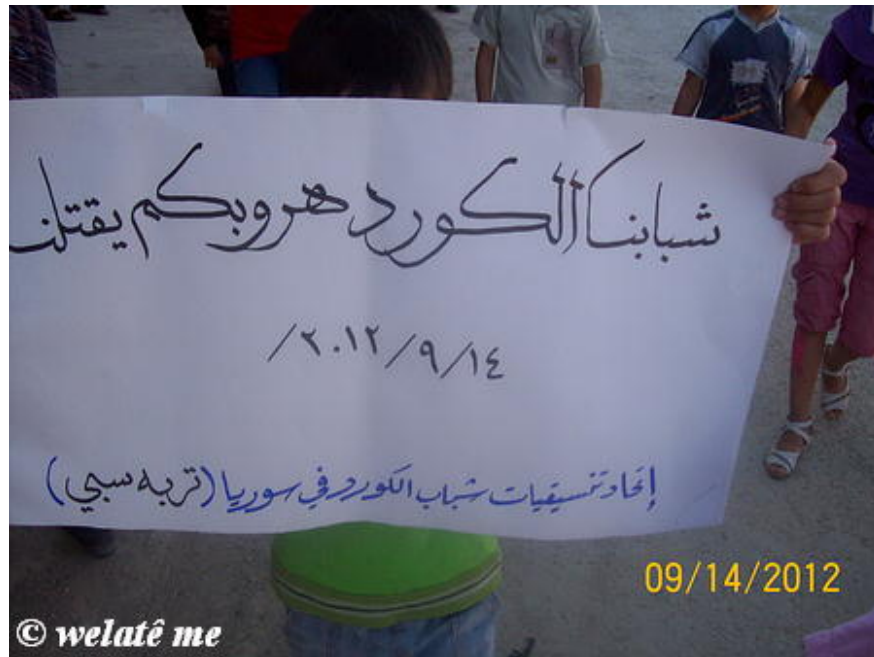 شبابنا الكورد هروبكم يقتلنـ
٢٠١٢/٩/١٤/
إتحاد تنسيقيات شباب الكورد في سوريا (تربه سبي)
09/14/2012
© welatê me